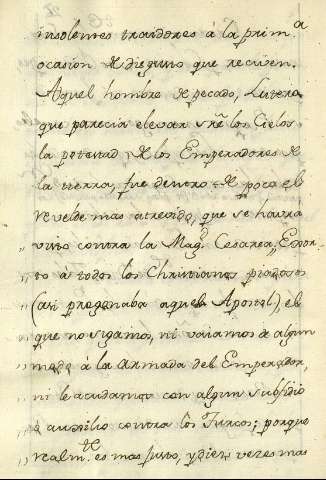 insolentes traidores á la prim.a
ocasion de disgusto que reciven.
Aquel hombre de pecado, Lutero,
que parecia elevar sre los Cielos
la potestad de los Emperadores de
la tierra, fue dentro de poco el
revelde mas atrevido, que se havra
visto contra la Magd Cesarea. Exor
„to á todos los Christianos piadosos
„(asi pregonaba aquel Apostol), el
„que no sigamos, ni vaiamos de algun
„modo á la armada del Emperador,
„ni le acudamos con algun subsidio
„o auxilio contra los Turcos; porque
„realm.te es mas justo, y diez veces mas